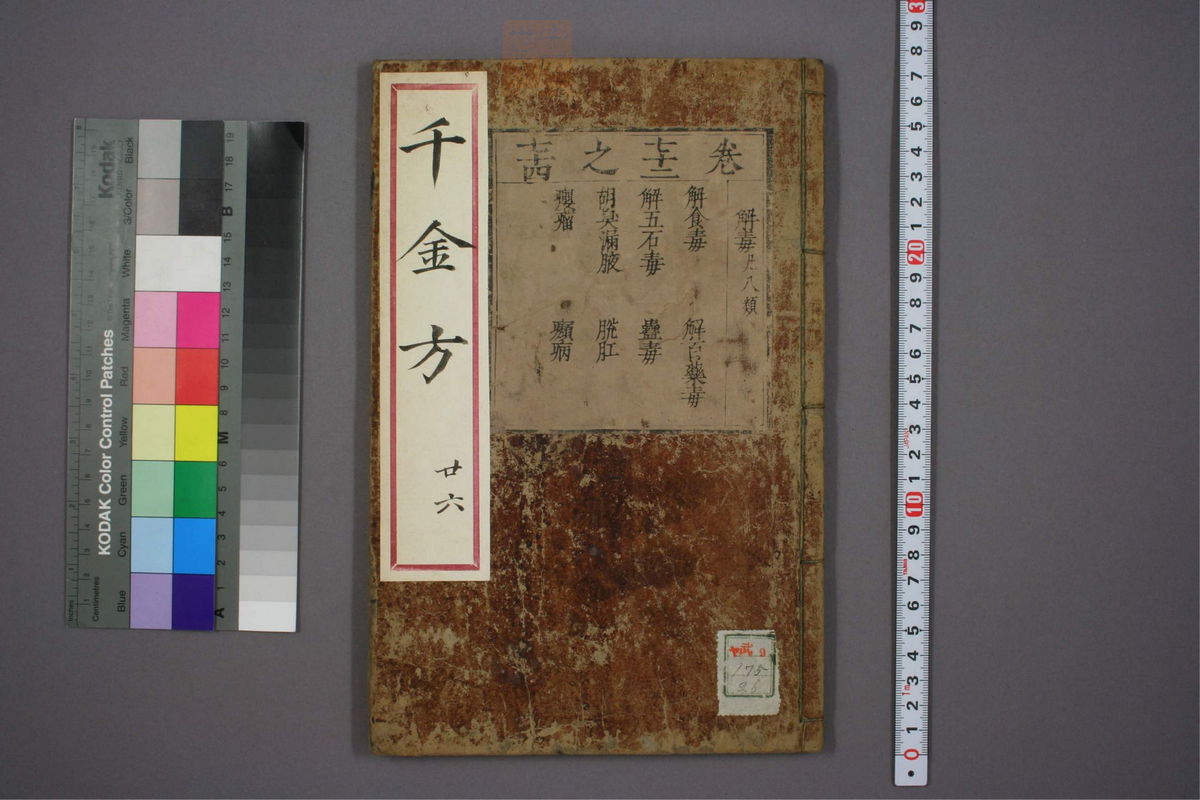 千金方
廿六
卷七十二之七十四
解毒凡八類
解食毒 解百藥毒
解五石毒 蠱毒
胡臭漏腋 脫肛
癭瘤 㿗病
175
KODAK Color Control Patches
Kodak
Blue Cyan Green Yellow Red Magenta White 3/Color Black
Inches
Centimetres
A 1 2 3 4 5 6 M 8 9 10 11 12 13 14 15 B 17 18 19
0 1 2 3 4 5 6 7 8 9 10 1 2 3 4 5 6 7 8 9 20 1 2 3 4 5 6 7 8 9 3